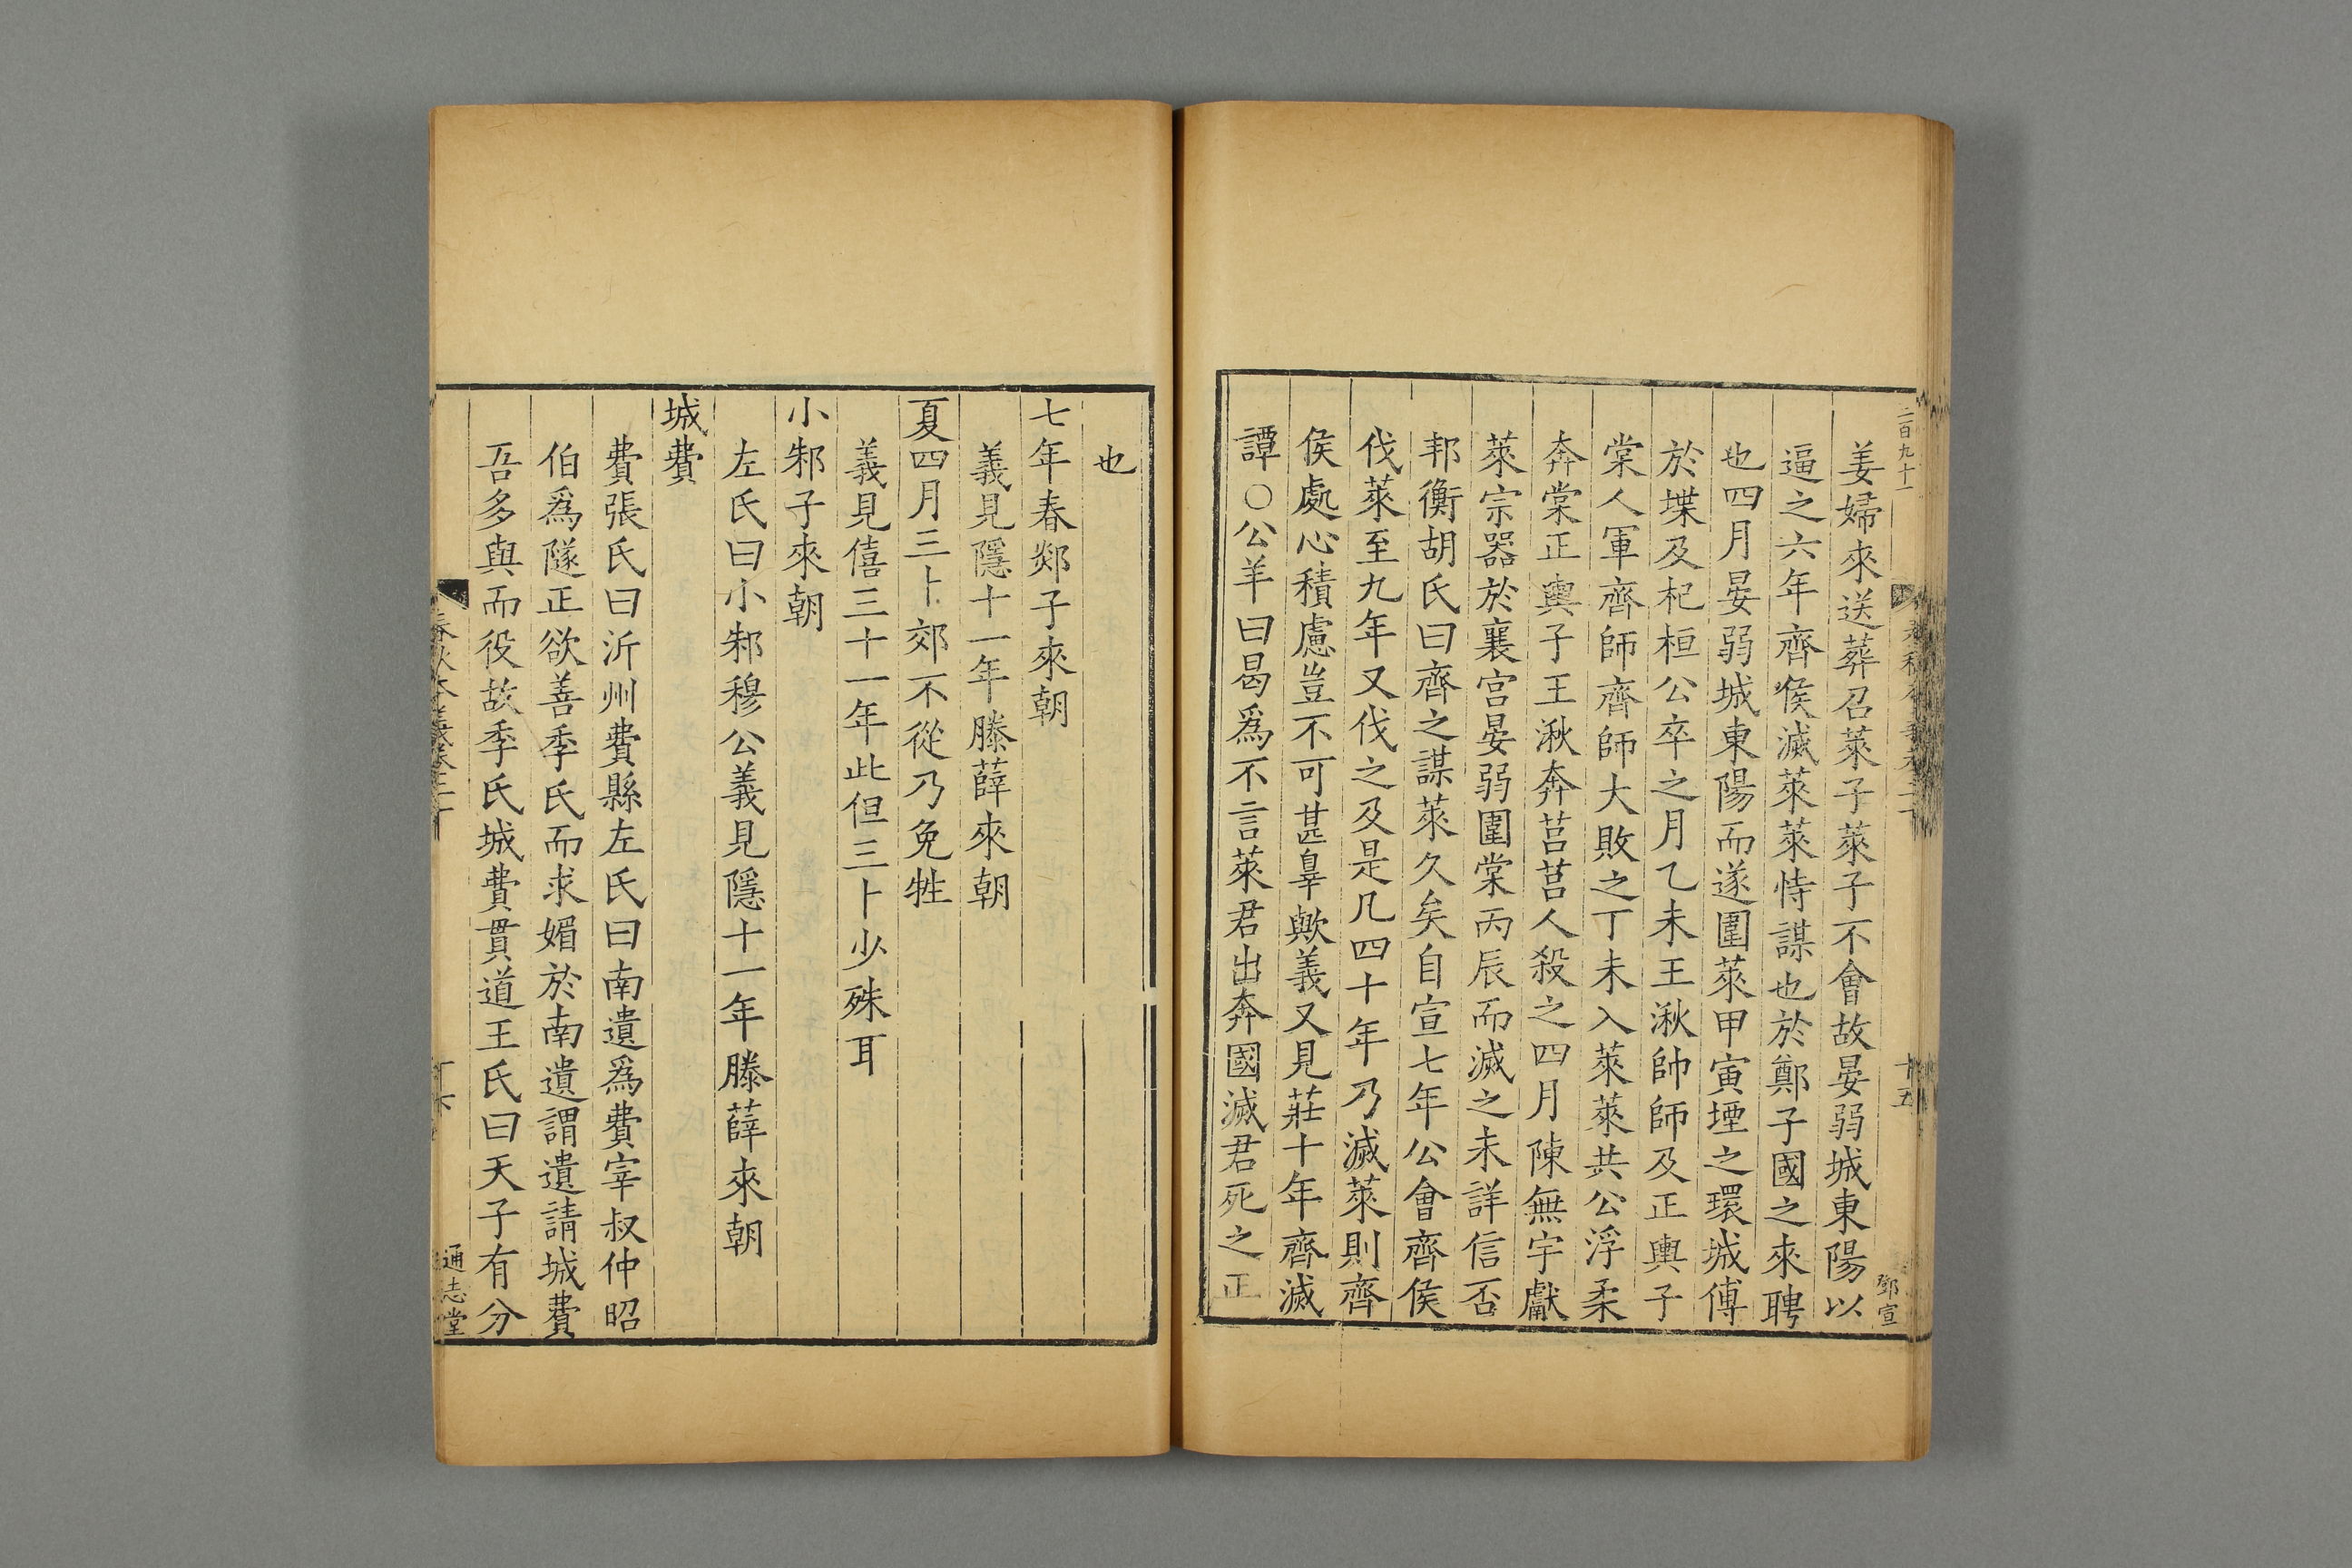 二百九十一
十五
鄧宣
姜婦來送葬召萊子萊子不會故晏弱城東陽以
逼之六年齊侯滅萊萊恃謀也於鄭子國之來聘
也四月晏弱城東陽而遂圍萊甲寅堙之環城傅
於堞及杞桓公卒之月乙未王湫帥師及正輿子
棠人軍齊師齊師大敗之丁未入萊萊共公浮柔
奔棠正輿子王湫奔莒莒人殺之四月陳無宇獻
萊宗器於襄宮晏弱圍棠丙辰而滅之未詳信否
邦衡胡氏曰齊之謀萊久矣自宣七年公會齊侯
伐萊至九年又伐之及是凡四十年乃滅萊則齊
侯處心積慮豈不可甚辠歟義又見莊十年齊滅
譚○公羊曰曷爲不言萊君出奔國滅君死之正
也
七年春郯子來朝
義見隱十一年滕薛來朝
夏四月三卜郊不從乃免牲
義見僖三十一年此但三卜少殊耳
小邾子來朝
左氏曰小邾穆公義見隱十一年滕薛來朝
城費
費張氏曰沂州費縣左氏曰南遺爲費宰叔仲昭
伯爲隧正欲善季氏而求媚於南遺謂遺請城費
吾多與而役故季氏城費貫道王氏曰天子有分
春秋本義卷二十
十六
通志堂